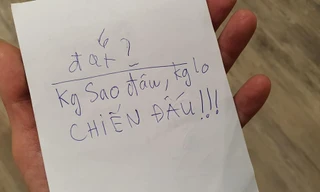 đạt?
Kg Sao đâu, kg lo
CHIẾN ĐẤU!!!